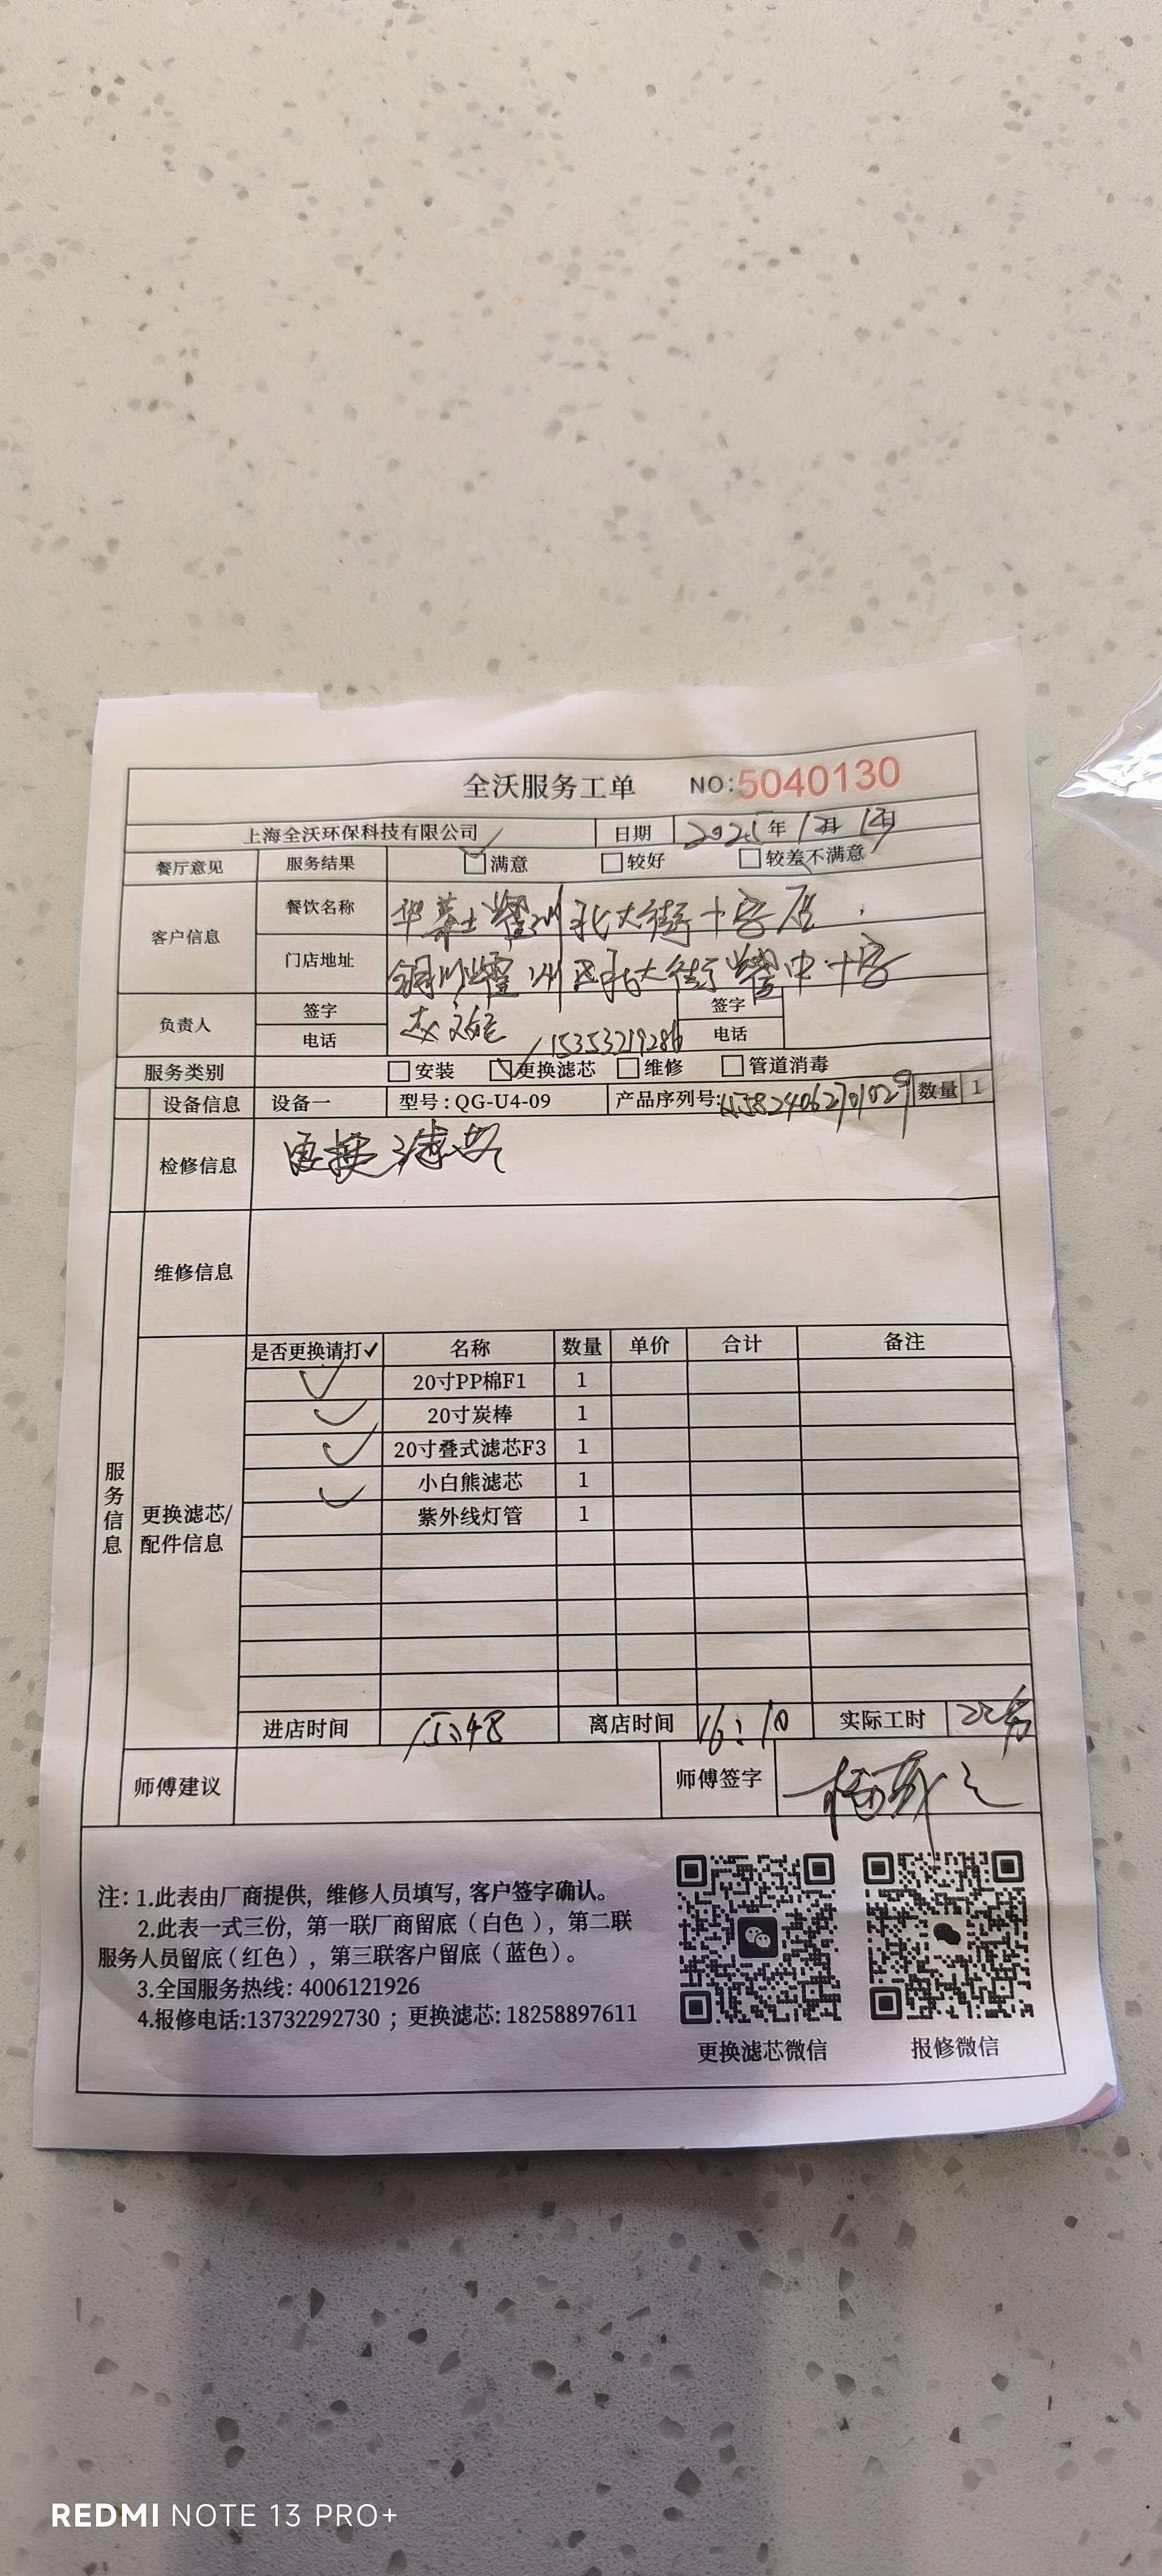 全沃服务工单 NO:5040130
上海全沃环保科技有限公司 日期 2025年12月1日
餐厅意见 服务结果 满意 较好 较差不满意
客户信息 餐饮名称 华莱士耀州北大街十字店
门店地址 铜川耀州区北大街耀中十字
负责人 签字 签字
电话 15353219286 电话
服务类别 安装 更换滤芯 维修 管道消毒
设备信息 设备一 型号:QG-U4-09 产品序列号: 数量 1
检修信息 更换滤芯
维修信息
服务信息
更换滤芯/配件信息
是否更换请打✓ 名称 数量 单价 合计 备注
✓ 20寸PP棉F1 1
✓ 20寸炭棒 1
✓ 20寸叠式滤芯F3 1
✓ 小白熊滤芯 1
紫外线灯管 1
进店时间 15:48 离店时间 16:10 实际工时 22分
师傅建议 师傅签字
注: 1.此表由厂商提供, 维修人员填写, 客户签字确认。
2.此表一式三份, 第一联厂商留底（白色）, 第二联
服务人员留底（红色）, 第三联客户留底（蓝色）。
3.全国服务热线: 4006121926
4.报修电话:13732292730 ; 更换滤芯: 18258897611
更换滤芯微信 报修微信
REDMI NOTE 13 PRO+